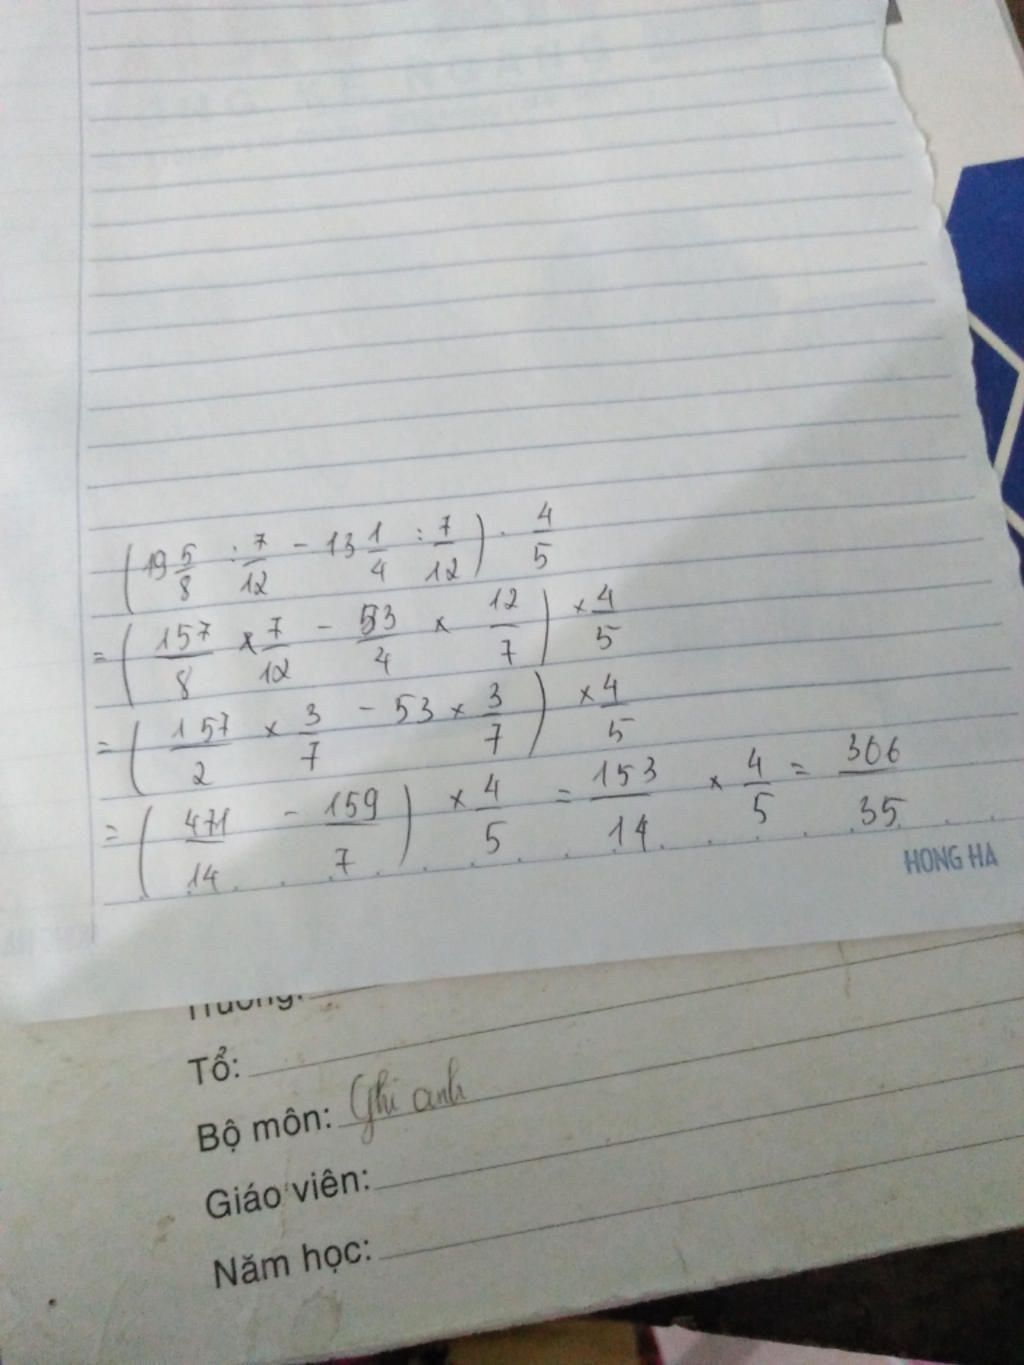 (19 5/8 : 7/12 - 13 1/4 : 7/12) . 4/5
= (157/8 x 7/12 - 53/4 x 12/7) x 4/5
= (157/2 x 3/7 - 53 x 3/7) x 4/5
= (471/14 - 159/7) x 4/5 = 153/14 x 4/5 = 306/35
HONG HA
Trường:
Tổ:
Bộ môn: Ghi anh
Giáo viên:
Năm học: